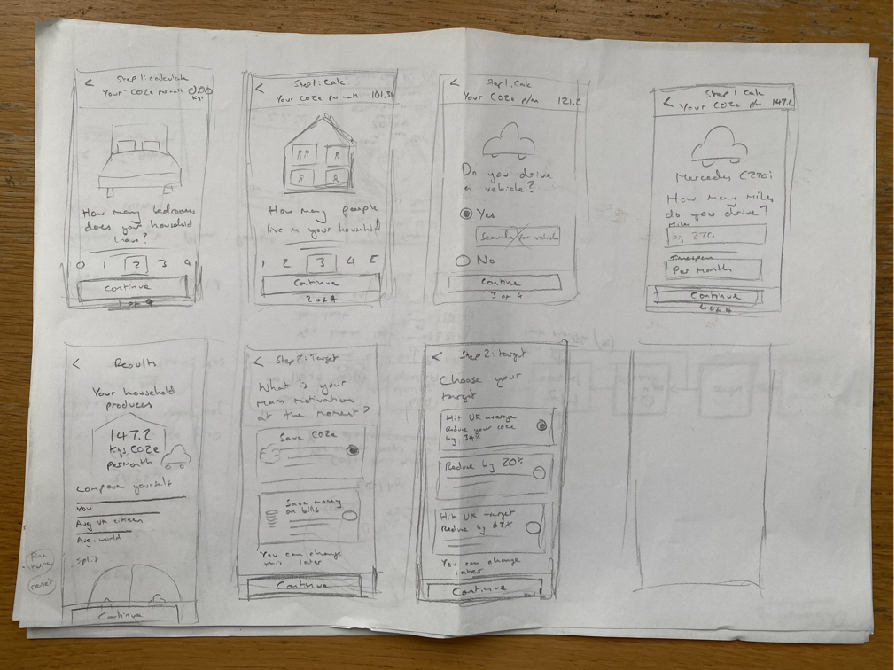 Step 1: calculate
Your CO2e per month 0.00
Kgs
How many bedrooms
does your household
have?
0 1 2 3 4
Continue
1 of 4
Step 1: Calc
Your CO2e per month 101.31
How many people
live in your household
1 2 3 4 5
Continue
2 of 4
Step 1. Calc
Your CO2e p/m 121.2
Do you drive
a vehicle?
Yes
Search for vehicle
No
Continue
3 of 4
Step 1 Calc
Your CO2e p/ 147.2
Mercedes C220i
How many miles
do you drive?
Miles
eg. 220
Timespan
Per month
Continue
Results
Your household
produces
147.2
kgs CO2e
per month
Compare yourself
You
Avg UK citizen
Avg. world
Split
Continue
Step 2: Target
What is your
main motivation
at the moment?
Save CO2e
Save money
on bills
You can change
this later
Continue
Step 2: Target
Choose your
target
Hit UK average
Reduce your CO2e
by 34%
Reduce by 20%
Hit UK target
Reduce by 69%
You can change
later
Continue